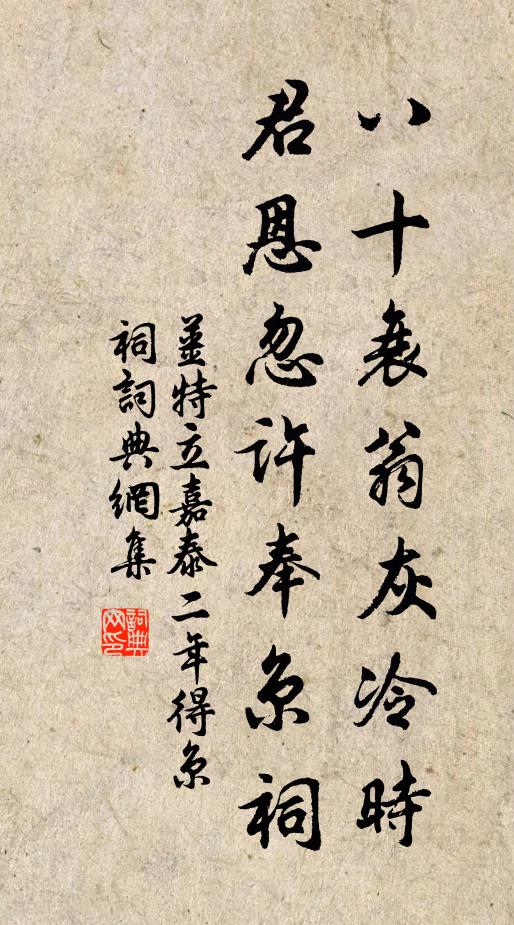 八十衰翁灰冷時
君恩忽許奉京祠
姜特立嘉泰二年得京
祠詞典網集
詞典
网印